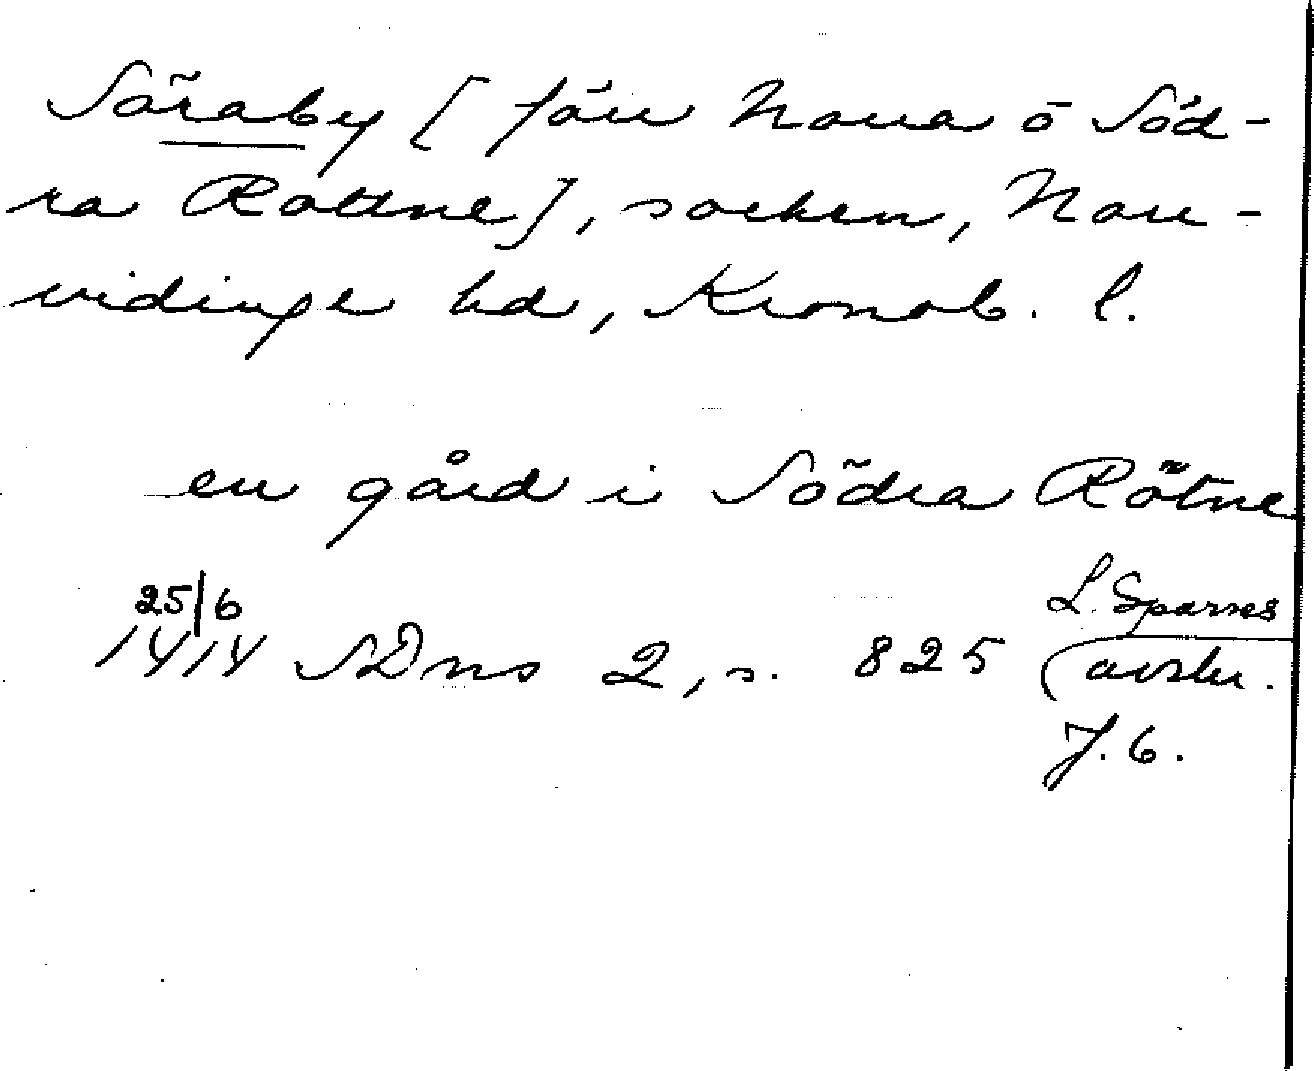 Söraby [ förr Norra o Söd-
ra Rottne], socken, Norr-
vidinge hd, Kronob. l.
en gård i Södra Rötne
25/6
1414 SDns 2, s. 825
L. Sparres
avskr.
J. 6.